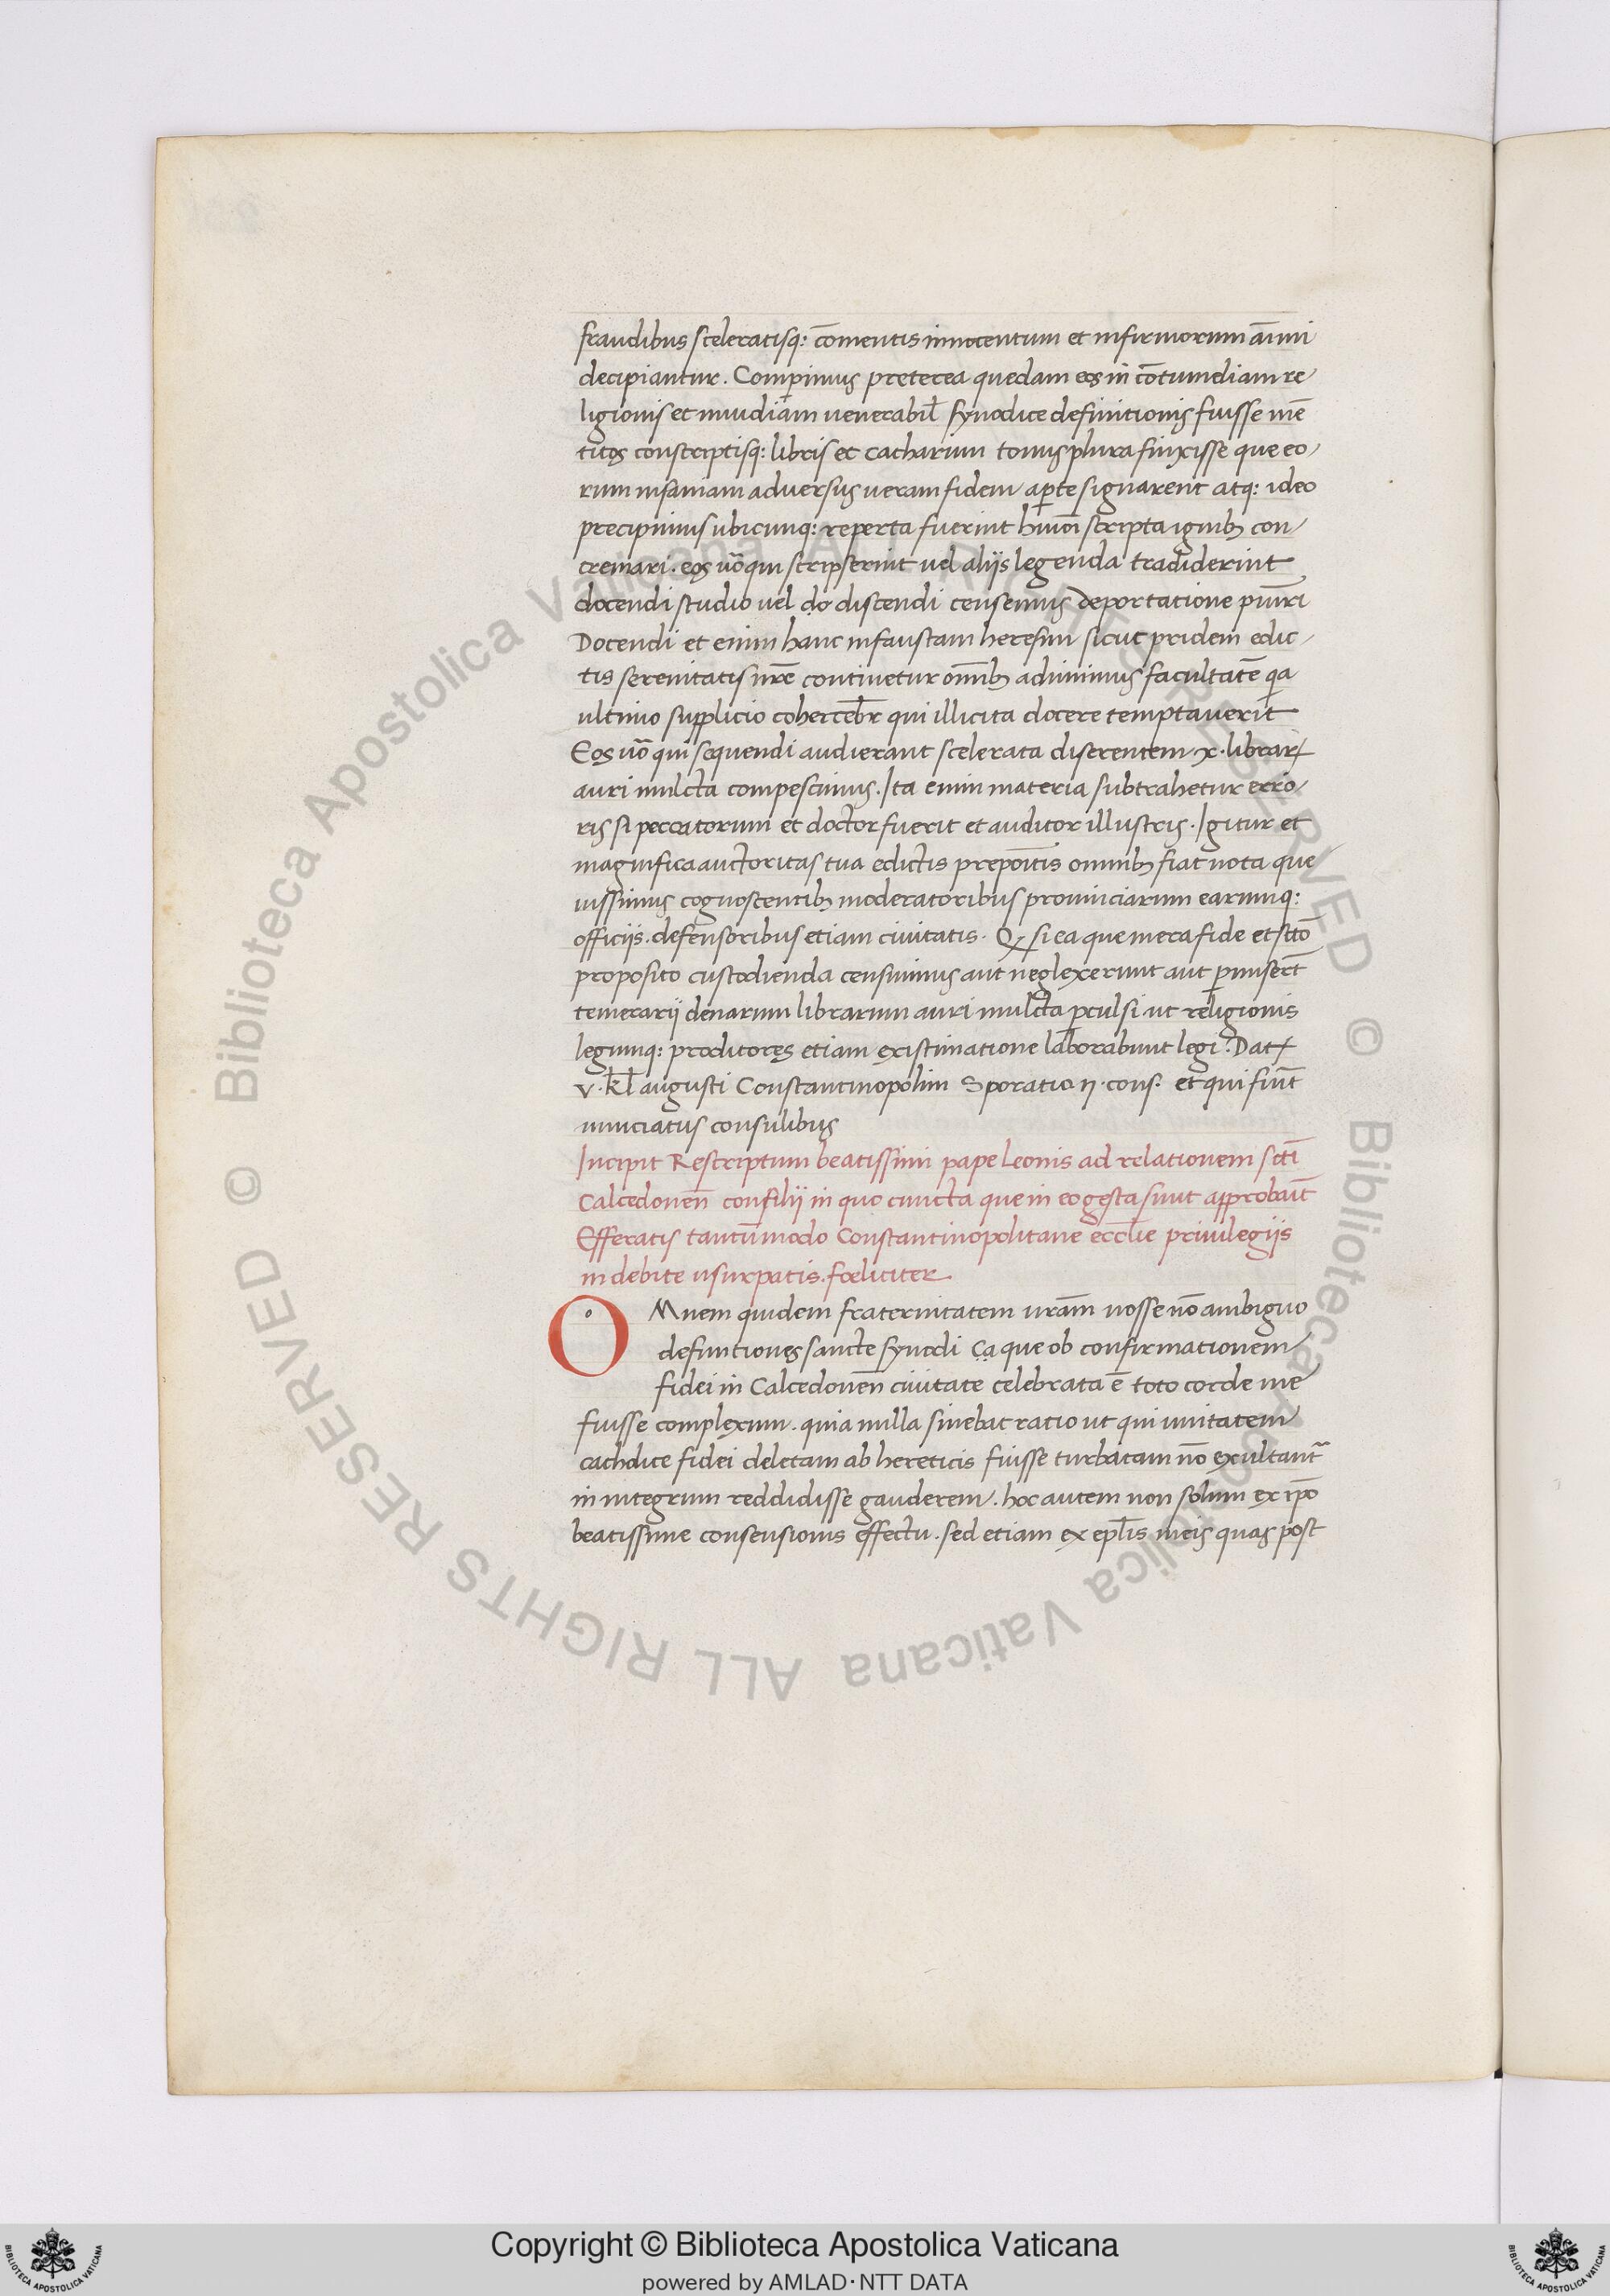 fraudibus sceleratisq: cōmentis innocentum et infirmorum aīmi
decipiantur. Comꝑimus preterea quedam eos in cōtumeliam re
ligionis et inuidiam uenerabiƚ synodice definitionis fuisse mē
titos conscriptisq: libris et cacharium tomus plura finxisse que eo
rum insaniam aduersus ueram fidem aꝑte signarent atq: ideo
precipimus ubicunq: reperta fuerint hmōi scripta ignibꝫ con
cremari. eos uō qui scripserint uel alijs legenda tradiderint
docendi studio uel do discendi censemus deportatione puīri
Docendi et enim hanc infaustam heresim sicut pridem edic
tis serenitatis nrē continetur omībꝫ adimimus facultatē qa
ultimo supplicio cohercebr̄ qui illicita docere temptauerit
Eos uō qui sequendi audierant scelerata diserentem x. librar
auri mulcta compescimus. Ita enim materia subtrahetur erro
ris si peccatorum et doctor fuerit et auditor illustris. Igitur et
magnifica auctoritas tua edictis prepoītis omnibꝫ fiat nota que
iussimus cognoscentibꝫ moderatoribus prouinciarum earumq:
officijs. defensoribus etiam ciuitatis. Qꝫ si ea que mera fide et sctō
proposito custodienda censuimus aut neglexerunt aut ꝑmisert̄
temerarij denarum librarum auri mulcta ꝑculsi ut religionis
legumq: proditores etiam existimatione laborabunt legi. Dat
v. kƚ augusti Constantinopolim Sporatio ij. cons. et qui fiut̄
nunciatus consulibus
Incipit Rescriptum beatissimi pape Leonis ad relationem sctī
Calcedoneñ consilij in quo cuncta que in eo gesta sunt approbauit̄
Efferatis tantūmodo Constantinopolitane ecclīe priuilegijs
indebite usurpatis. fœliciter
OMnem quidem fraternitatem uram̄ nosse nō ambiguo
definitiones sancte synodi ea que ob confirmationem
fidei in Calcedoneñ ciuitate celebrata ē toto corde me
fuisse complexum. quia nulla sinebat ratio ut qui unitatem
catholice fidei deletam ab hereticis fuisse turbatam nō exultant̄
in integrum reddidisse gauderem. hoc autem non solum ex ipō
beatissime consensionis effectu. sed etiam ex eplīs meis quas post
Copyright © Biblioteca Apostolica Vaticana
powered by AMLAD·NTT DATA
© Biblioteca Apostolica Vaticana ALL RIGHTS RESERVED
© Biblioteca Apostolica Vaticana ALL RIGHTS RESERVED
BIBLIOTECA APOSTOLICA VATICANA
BIBLIOTECA APOSTOLICA VATICANA